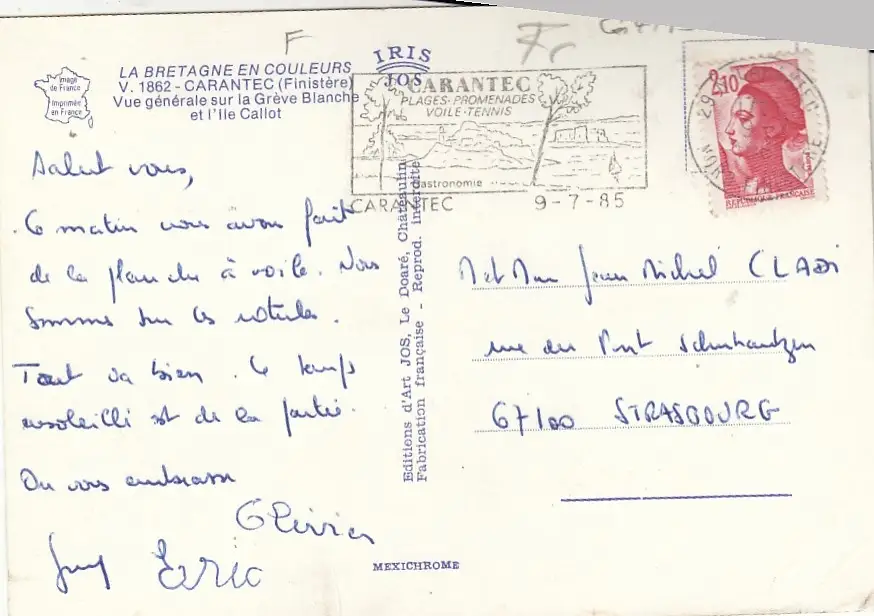 F
Fc
LA BRETAGNE EN COULEURS
V. 1862 - CARANTEC (Finistère)
Vue générale sur la Grève Blanche
et l'Ile Callot
Image
de France
Imprimée
en France
IRIS
JOS
CARANTEC
PLAGES-PROMENADES
VOILE-TENNIS
Gastronomie
CARANTEC
9-7-85
29
2,10
REPUBLIQUE FRANÇAISE
Salut vous,
Ce matin nous avons fait
de la planche à voile. Nous
sommes sur les rotules.
Tout va bien. Le temps
ensoleillé est de la partie.
On vous embrasse
Olivier
Guy Eric
Editions d'Art JOS, Le Doaré, Châteaulin
Fabrication française - Reprod. interdite
MEXICHROME
M et Mme Jean Michel
rue du
67100 STRASBOURG